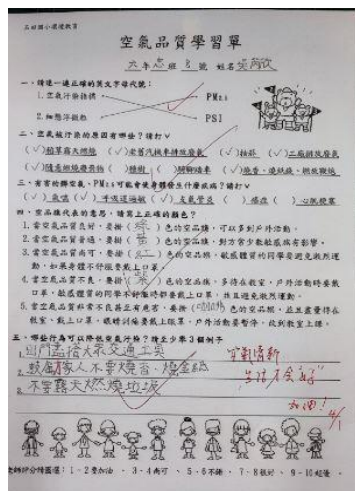 空氣品質學習單
六年忠班8號 姓名
一、請連一連正確的英文字母代號：
1.空氣污染指標 PM2.5
2.細懸浮微粒 PSI
二、空氣被汙染的原因有哪些？請打ˇ
(ˇ)稻草露天燃燒 (ˇ)老舊汽機車排放廢氣 (ˇ)抽菸 (ˇ)工廠排放廢氣
(ˇ)隨意燃燒廢棄物 ( )種樹 ( )騎腳踏車 (ˇ)燒香、燒紙錢、燃放鞭炮
三、有害的髒空氣，PM2.5可能會使身體發生什麼疾病？請打ˇ
(ˇ)氣喘 (ˇ)呼吸道過敏 (ˇ)支氣管炎 ( )癌症 ( )心肌梗塞
四、空品旗代表的意思，請寫上正確的顏色？
1.當空氣品質良好，要掛(綠)色的空品旗，可以多到戶外活動。
2.當空氣品質普通，要掛(黃)色的空品旗，對方常少數敏感族有影響。
3.當空氣品質尚可，要掛( )色的空品旗，敏感體質的同學要避免激烈運
動，如果身體不舒服要戴上口罩。
4.當空氣品質不良，要掛(紫)色的空品旗，多待在教室，戶外活動時要戴
口罩，敏感體質的同學不舒服時都要戴上口罩，並且避免激烈運動。
5.當空氣品質非常不良甚至有危害，要掛( )色的空品旗，並且盡量待在
教室、戴上口罩，眼睛刺痛要戴上眼罩，戶外活動要暫停，放到教室上課。
三、哪些行為可以降低空氣汙染？請至少舉3個例子
1.出門盡搭大眾交通工具
2.鼓勵家人不要燒香、燒金紙
3.不要露天燃燒垃圾
空氣清新
生活才會好
加油！
4/1
老師評分請圈選：1-2要加油、3-4尚可、5-6不錯、7-8很好、9-10超優。